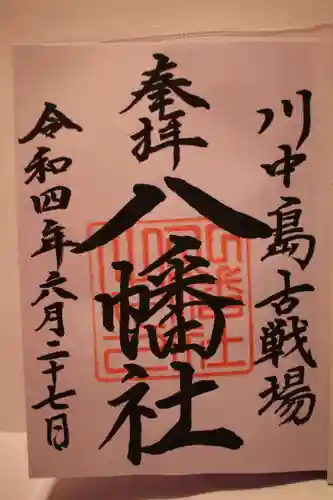 川中島古戦場
奉拝
八幡社
令和四年六月二十七日